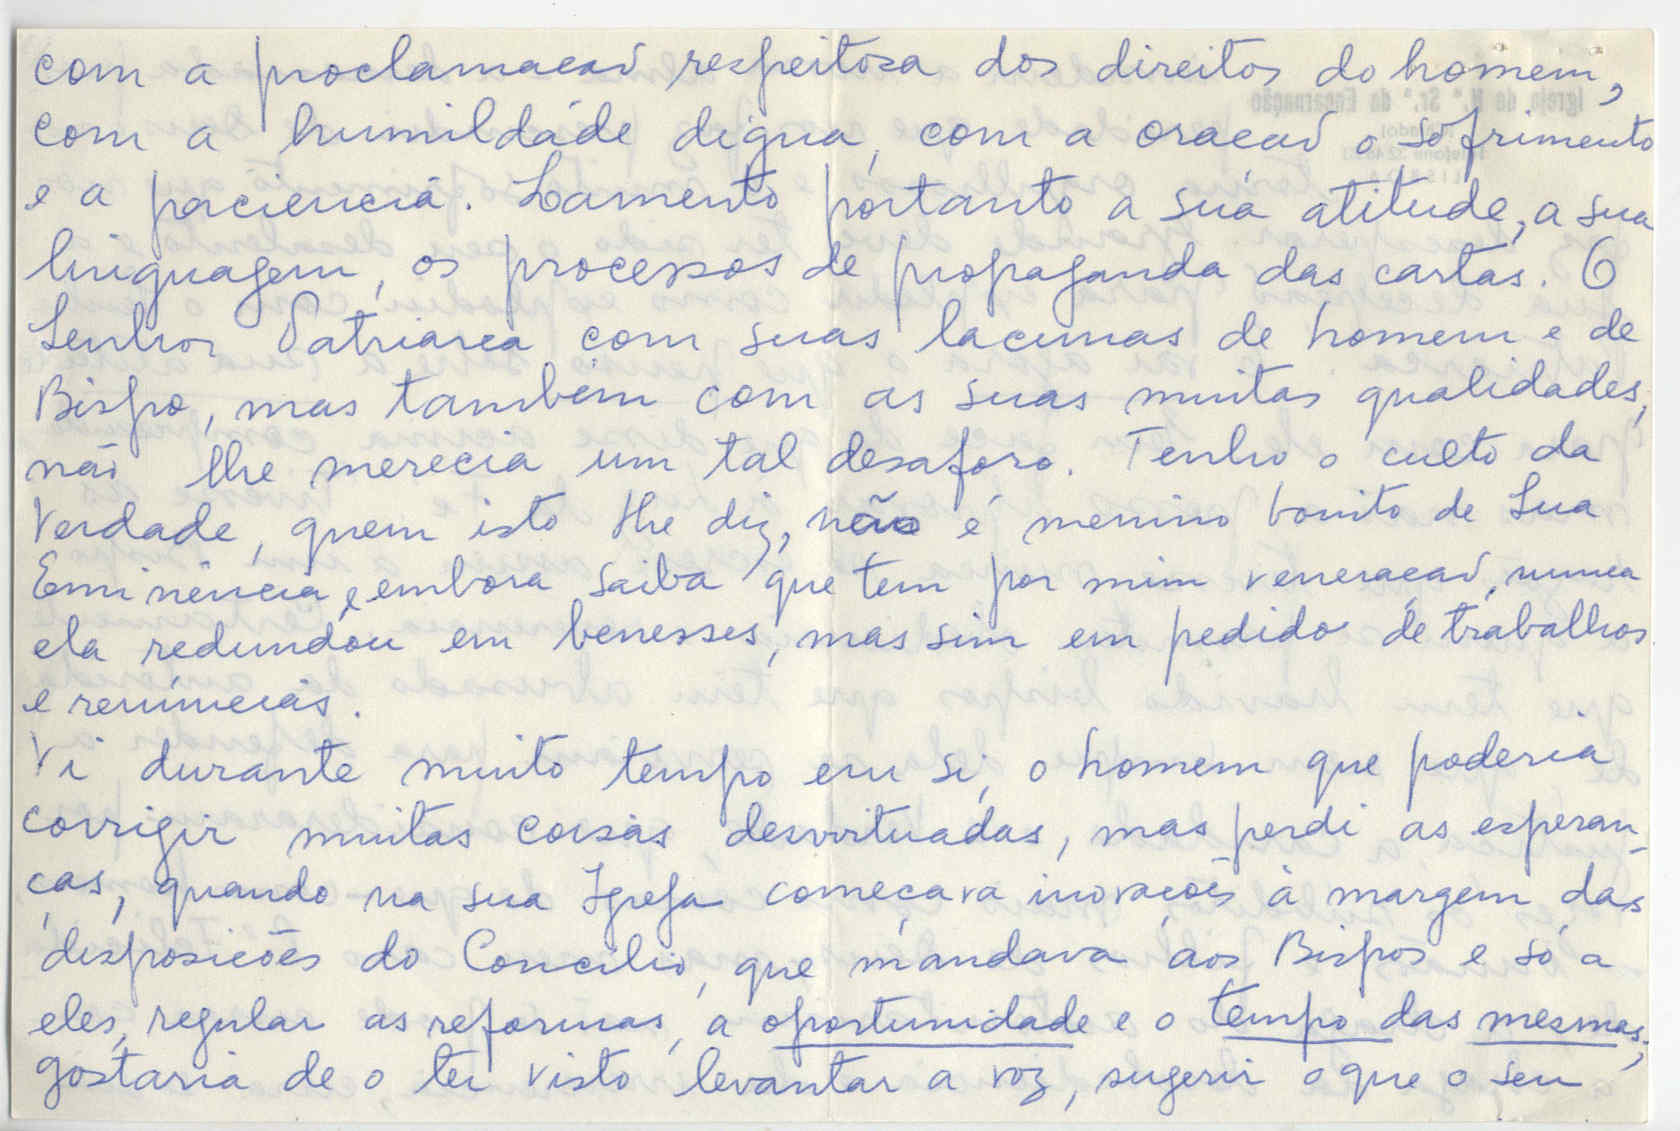 com a proclamação respeitosa dos direitos do homem,
com a humildade digna, com a oração o sofrimento
e a paciencia. Lamento portanto a sua atitude, a sua
linguagem, os processos de propaganda das cartas. O
Senhor Patriarca com suas lacunas de homem e de
Bispo, mas também com as suas muitas qualidades,
não lhe merecia um tal desaforo. Tenho o culto da
Verdade, quem isto lhe diz, não é menino bonito de Sua
Eminência, e embora saiba que tem por mim veneração, nunca
ela redundou em benesses, mas sim em pedidos de trabalhos
e renúncias.
Vi durante muito tempo em si, o homem que poderia
corrigir muitas coisas desvirtuadas, mas perdi as esperan-
ças, quando na sua Igreja começava inovações à margem das
disposições do Concílio, que mandava aos Bispos e só a
eles, regular as reformas, a oportunidade e o tempo das mesmas,
gostaria de o ter visto levantar a voz, sugerir o que o seu
Igreja de N.ª Sr.ª da Encarnação